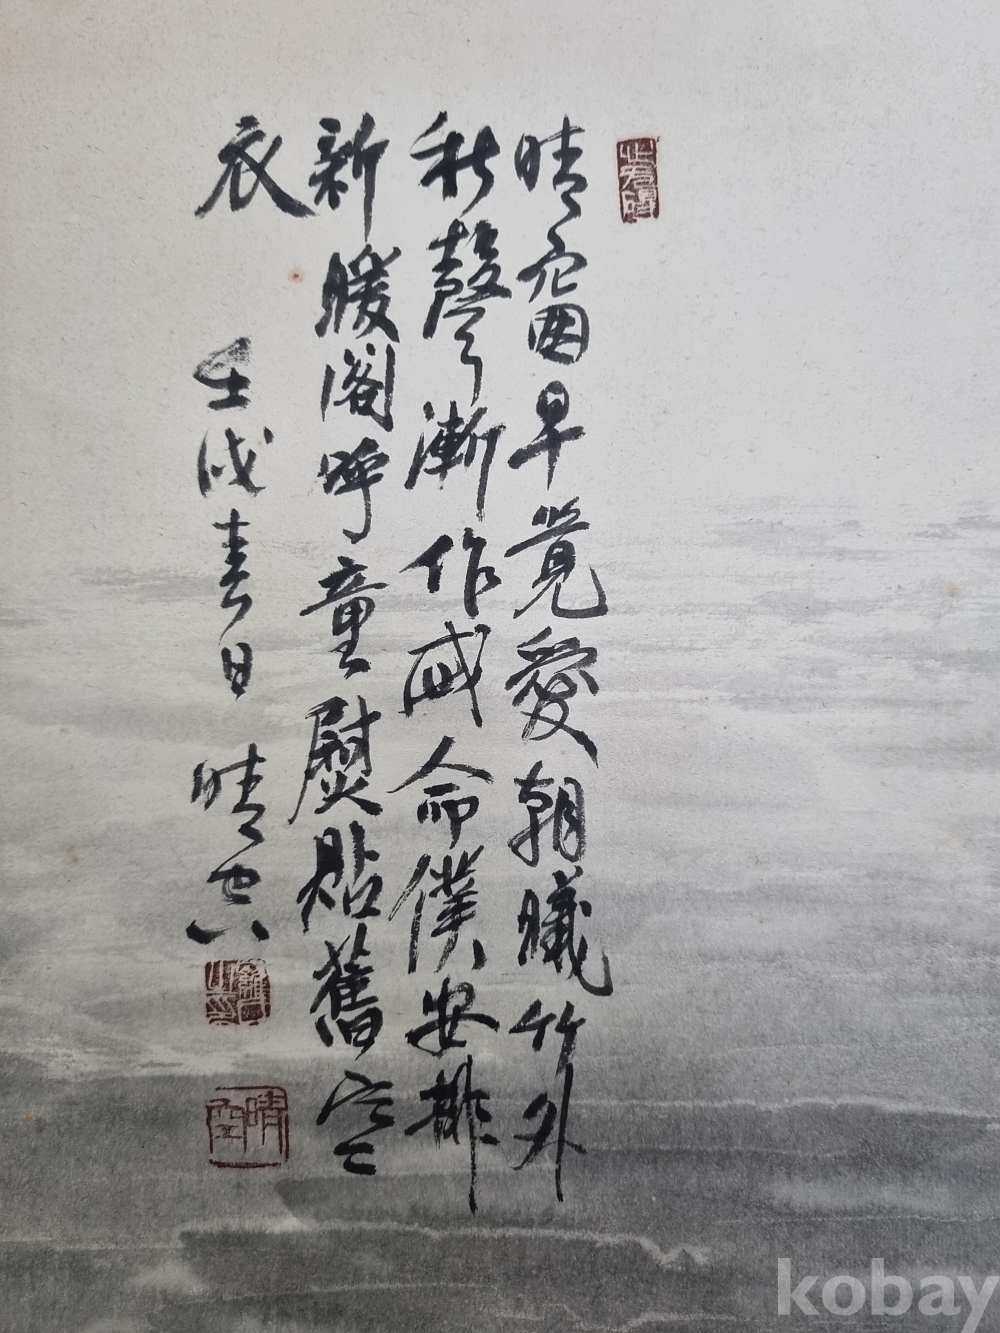 晴窗早覺愛朝曦竹外
秋聲漸作威命僕安排
新暖閣呼童熨貼舊寒
衣 壬戌春日 晴
kobay